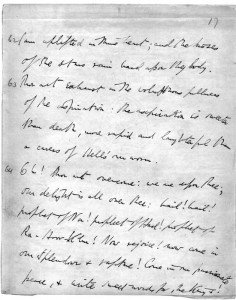 17
62 I am uplifted in thine heart; and the kisses
of the stars rain hard upon thy body.
63 Thou art exhaust in the voluptuous fullness
of the inspiration: the expiration is sweeter
than death, more rapid and laughterful than
a caress of Hell's own worm.
64 Oh! thou art overcome: we are upon thee;
our delight is all over thee: hail! hail!
prophet of Nu! prophet of Had! prophet of
Ra-Hoor-Khu! Now rejoice! now come in
our splendour & rapture! Come in our passionate
peace, & write sweet words for the Kings!